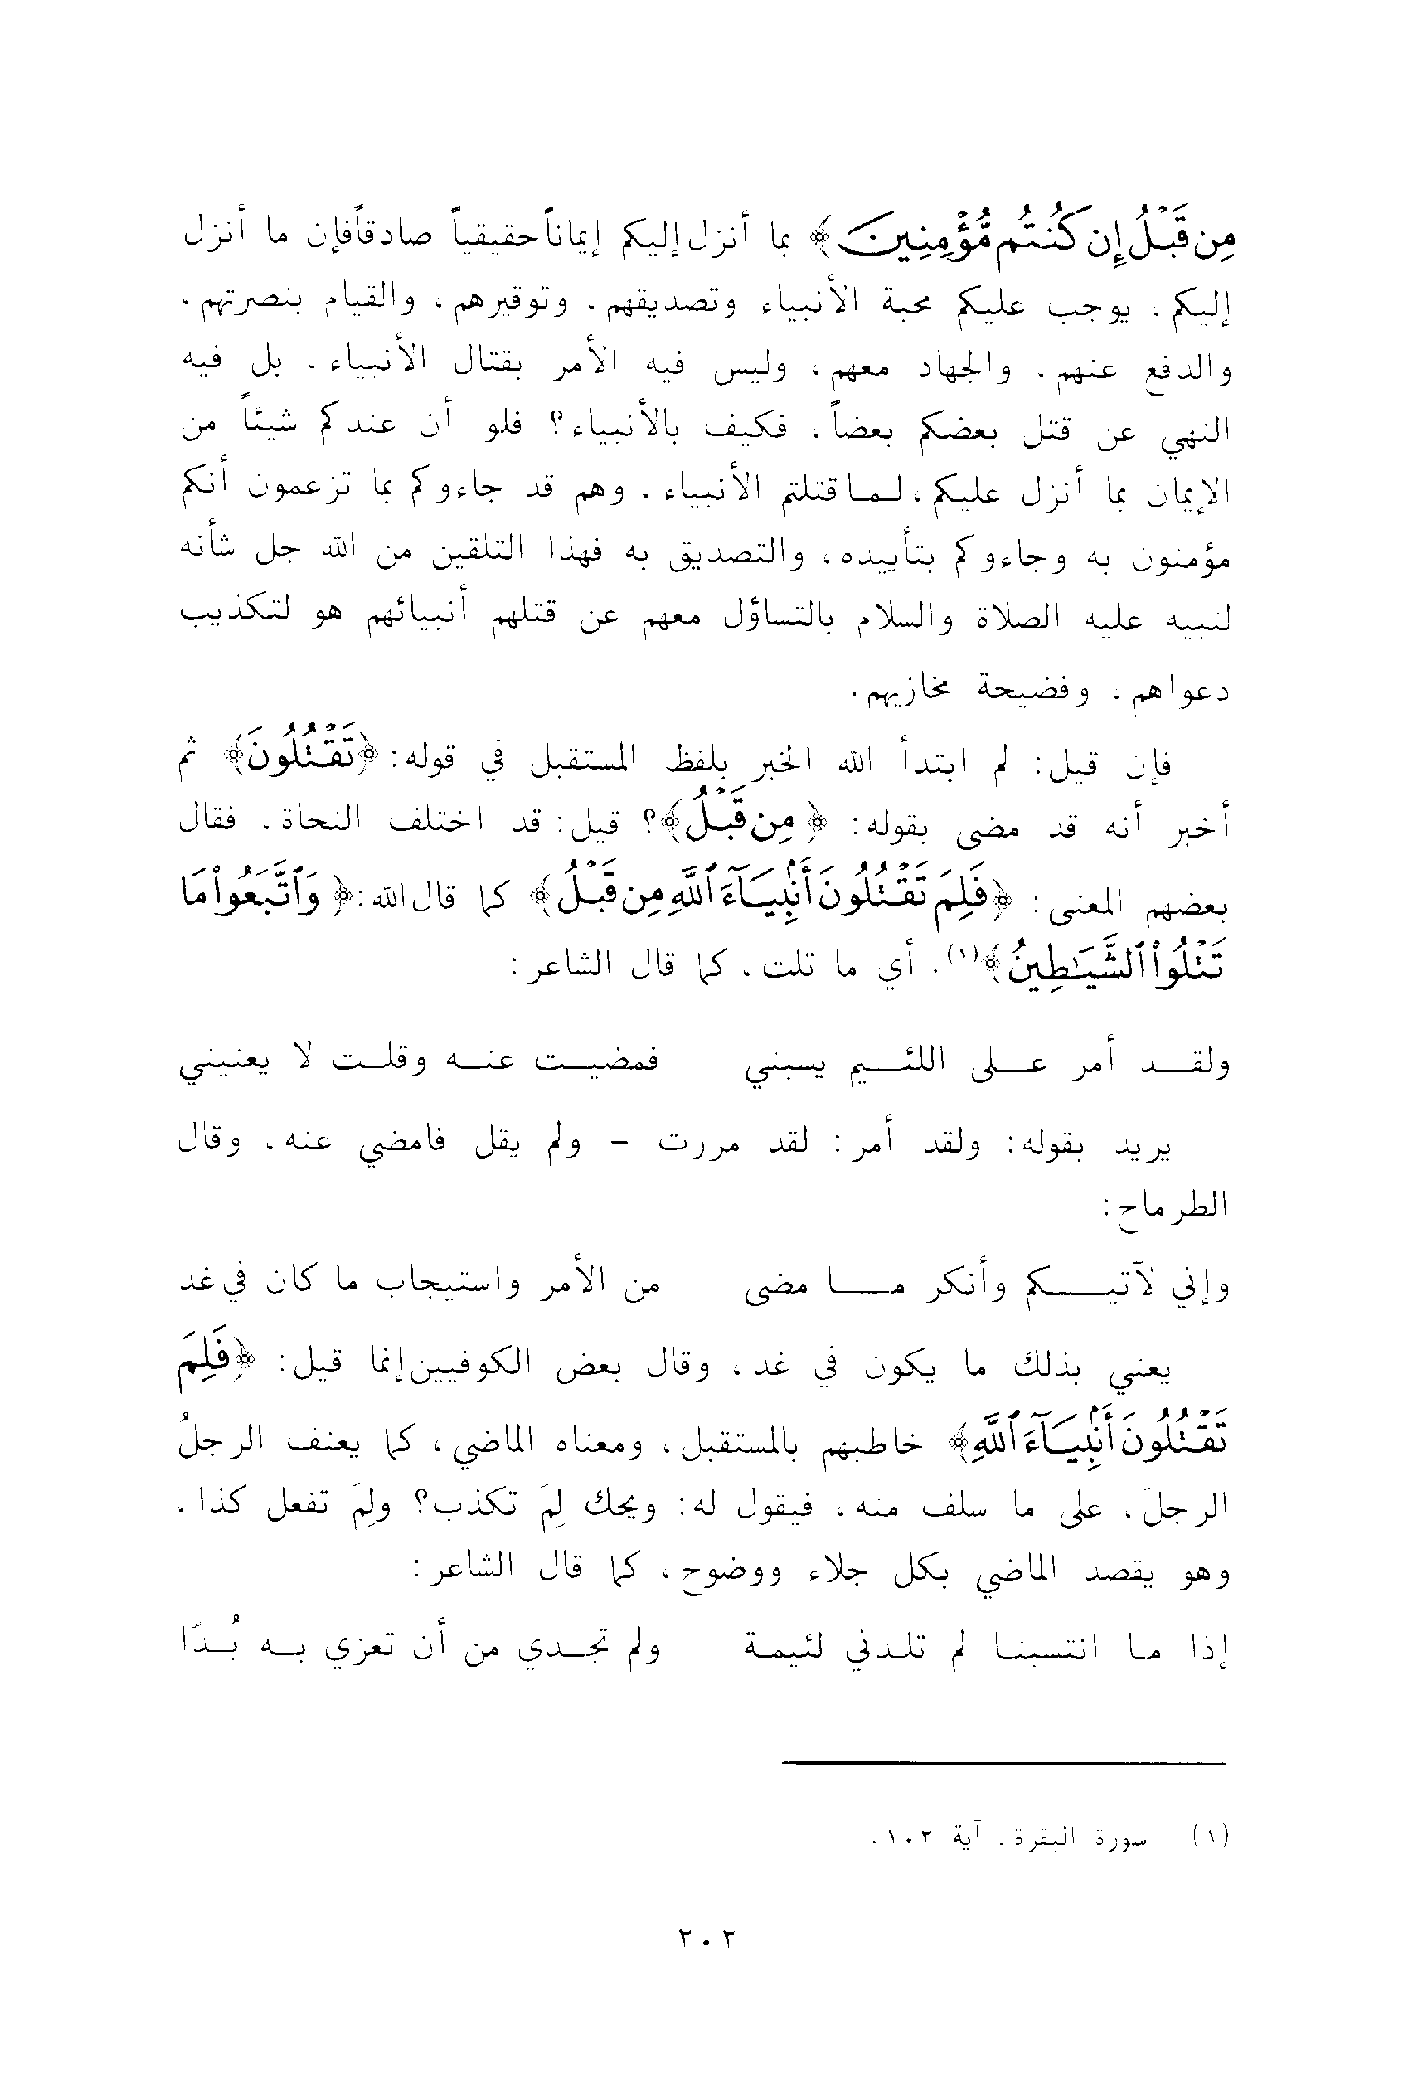 مِن قَبْلُ إِن كُنتُم مُّؤْمِنِينَ﴾ بما أنزل إليكم إيماناً حقيقياً صادقاً فإن ما أنزل
إليكم. يوجب عليكم محبة الأنبياء وتصديقهم. وتوقيرهم، والقيام بنصرتهم.
والدفع عنهم. والجهاد معهم، وليس فيه الأمر بقتال الأنبياء. بل فيه
النهي عن قتل بعضكم بعضاً. فكيف بالأنبياء؟ فلو أن عندكم شيئاً من
الإيمان بما أنزل عليكم، لما قتلتم الأنبياء. وهم قد جاءوكم بما تزعمون أنكم
مؤمنون به وجاءوكم بتأييده، والتصديق به فهذا التلقين من الله جل شأنه
لنبيه عليه الصلاة والسلام بالتساؤل معهم عن قتلهم أنبيائهم هو لتكذيب
دعواهم. وفضيحة مخازيهم.
فإن قيل: لم ابتدأ الله الخبر بلفظ المستقبل في قوله: ﴿تَقْتُلُونَ﴾ ثم
أخبر أنه قد مضى بقوله: ﴿مِن قَبْلُ﴾؟ قيل: قد اختلف النحاة. فقال
بعضهم المعنى: ﴿فَلِمَ تَقْتُلُونَ أَنۢبِيَآءَ ٱللَّهِ مِن قَبْلُ﴾ كما قال الله: ﴿وَٱتَّبَعُوا۟ مَا
تَتْلُوا۟ ٱلشَّيَٰطِينُ﴾(١). أي ما تلت. كما قال الشاعر:
ولقد أمر على اللئيم يسبني فمضيت عنه وقلت لا يعنيني
يريد بقوله: ولقد أمر: لقد مررت - ولم يقل فامضي عنه. وقال
الطرماح:
وإني لآتيكم وأنكر ما مضى من الأمر واستيجاب ما كان في غد
يعني بذلك ما يكون في غد، وقال بعض الكوفيين إنما قيل: ﴿فَلِمَ
تَقْتُلُونَ أَنۢبِيَآءَ ٱللَّهِ﴾ خاطبهم بالمستقبل، ومعناه الماضي، كما يعنف الرجلُ
الرجلَ. على ما سلف منه. فيقول له: ويحك لِمَ تكذب؟ ولِمَ تفعل كذا.
وهو يقصد الماضي بكل جلاء ووضوح، كما قال الشاعر:
إذا ما انتسبنا لم تلدني لئيمة ولم تجدي من أن تعزي به بُدَّا
(١) سورة البقرة. آية ١٠٢.
٢٠٢